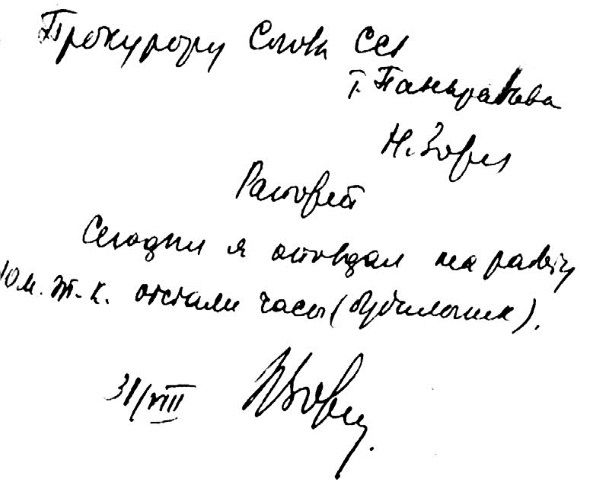 Прокурору Слова ССР
т. Панкратьева
Н. Зоря
Рапорт
Сегодня я опоздал на работу
10 м. т.к. отстали часы (будильник).
31/VIII